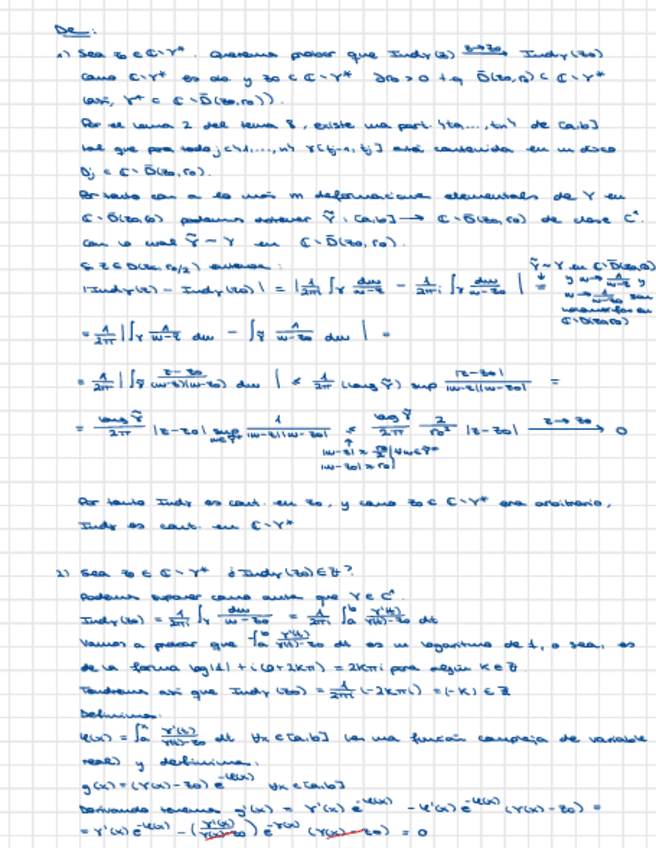 De:
1) Sea z0 ∈ C\γ*. Queremos probar que Indγ(z) →(z→z0) Indγ(z0)
como C\γ* es ab. y z0 ∈ C\γ* ∃r0 > 0 t.q. D̄(z0,r0) ⊂ C\γ*
(así, γ* ⊂ C\D̄(z0,r0)).
Por el lema 2 del tema 8, existe una part. {t0,...,tn} de [a,b]
tal que para todo j∈{1,...,n} γ[tj-1, tj] está contenida en un disco
Dj ⊂ C\D̄(z0,r0).
Por tanto con a lo más n deformaciones elementales de γ en
C\D̄(z0,r0) podemos obtener γ̃: [a,b] → C\D̄(z0,r0) de clase C¹
con lo cual γ̃ ~ γ en C\D̄(z0,r0).
Si z ∈ D(z0, r0/2) entonces:
|Indγ(z) - Indγ(z0)| = |1/2πi ∫γ dw/(w-z) - 1/2πi ∫γ dw/(w-z0)| =
γ̃ ~ γ en C\D̄(z0,r0)
y w→1/(w-z) y
w→1/(w-z0) son
holomorfas en
C\D̄(z0,r0)
= 1/2π |∫γ̃ 1/(w-z) dw - ∫γ̃ 1/(w-z0) dw| =
= 1/2π |∫γ̃ (z-z0)/((w-z)(w-z0)) dw| ≤ 1/2π (long γ̃) sup |z-z0|/(|w-z||w-z0|) =
= long γ̃/2π |z-z0| sup w∈γ̃* 1/(|w-z||w-z0|) ≤ long γ̃/2π 2/r0² |z-z0| →(z→z0) 0
|w-z| ≥ r0/2 ∀w∈γ̃*
|w-z0| ≥ r0
Por tanto Indγ es cont. en z0, y como z0 ∈ C\γ* era arbitrario,
Indγ es cont. en C\γ*
2) Sea z0 ∈ C\γ* ¿Indγ(z0) ∈ Z?
Podemos suponer como antes que γ ∈ C¹
Indγ(z0) = 1/2πi ∫γ dw/(w-z0) = 1/2πi ∫a^b γ'(t)/(γ(t)-z0) dt
Vamos a probar que -∫a^b γ'(t)/(γ(t)-z0) dt es un logaritmo de 1, o sea, es
de la forma log|1| + i(0+2kπ) = 2kπi para algún k∈Z
Tendremos así que Indγ(z0) = 1/2πi (-2kπi) = (-k) ∈ Z
Definimos:
φ(x) = ∫a^x γ'(t)/(γ(t)-z0) dt ∀x∈[a,b] (es una función compleja de variable
real) y definimos:
g(x) = (γ(x)-z0) e^-φ(x) ∀x∈[a,b]
Derivando tenemos g'(x) = γ'(x) e^-φ(x) - φ'(x) e^-φ(x) (γ(x)-z0) =
= γ'(x) e^-φ(x) - (γ'(x)/(γ(x)-z0)) e^-φ(x) (γ(x)-z0) = 0